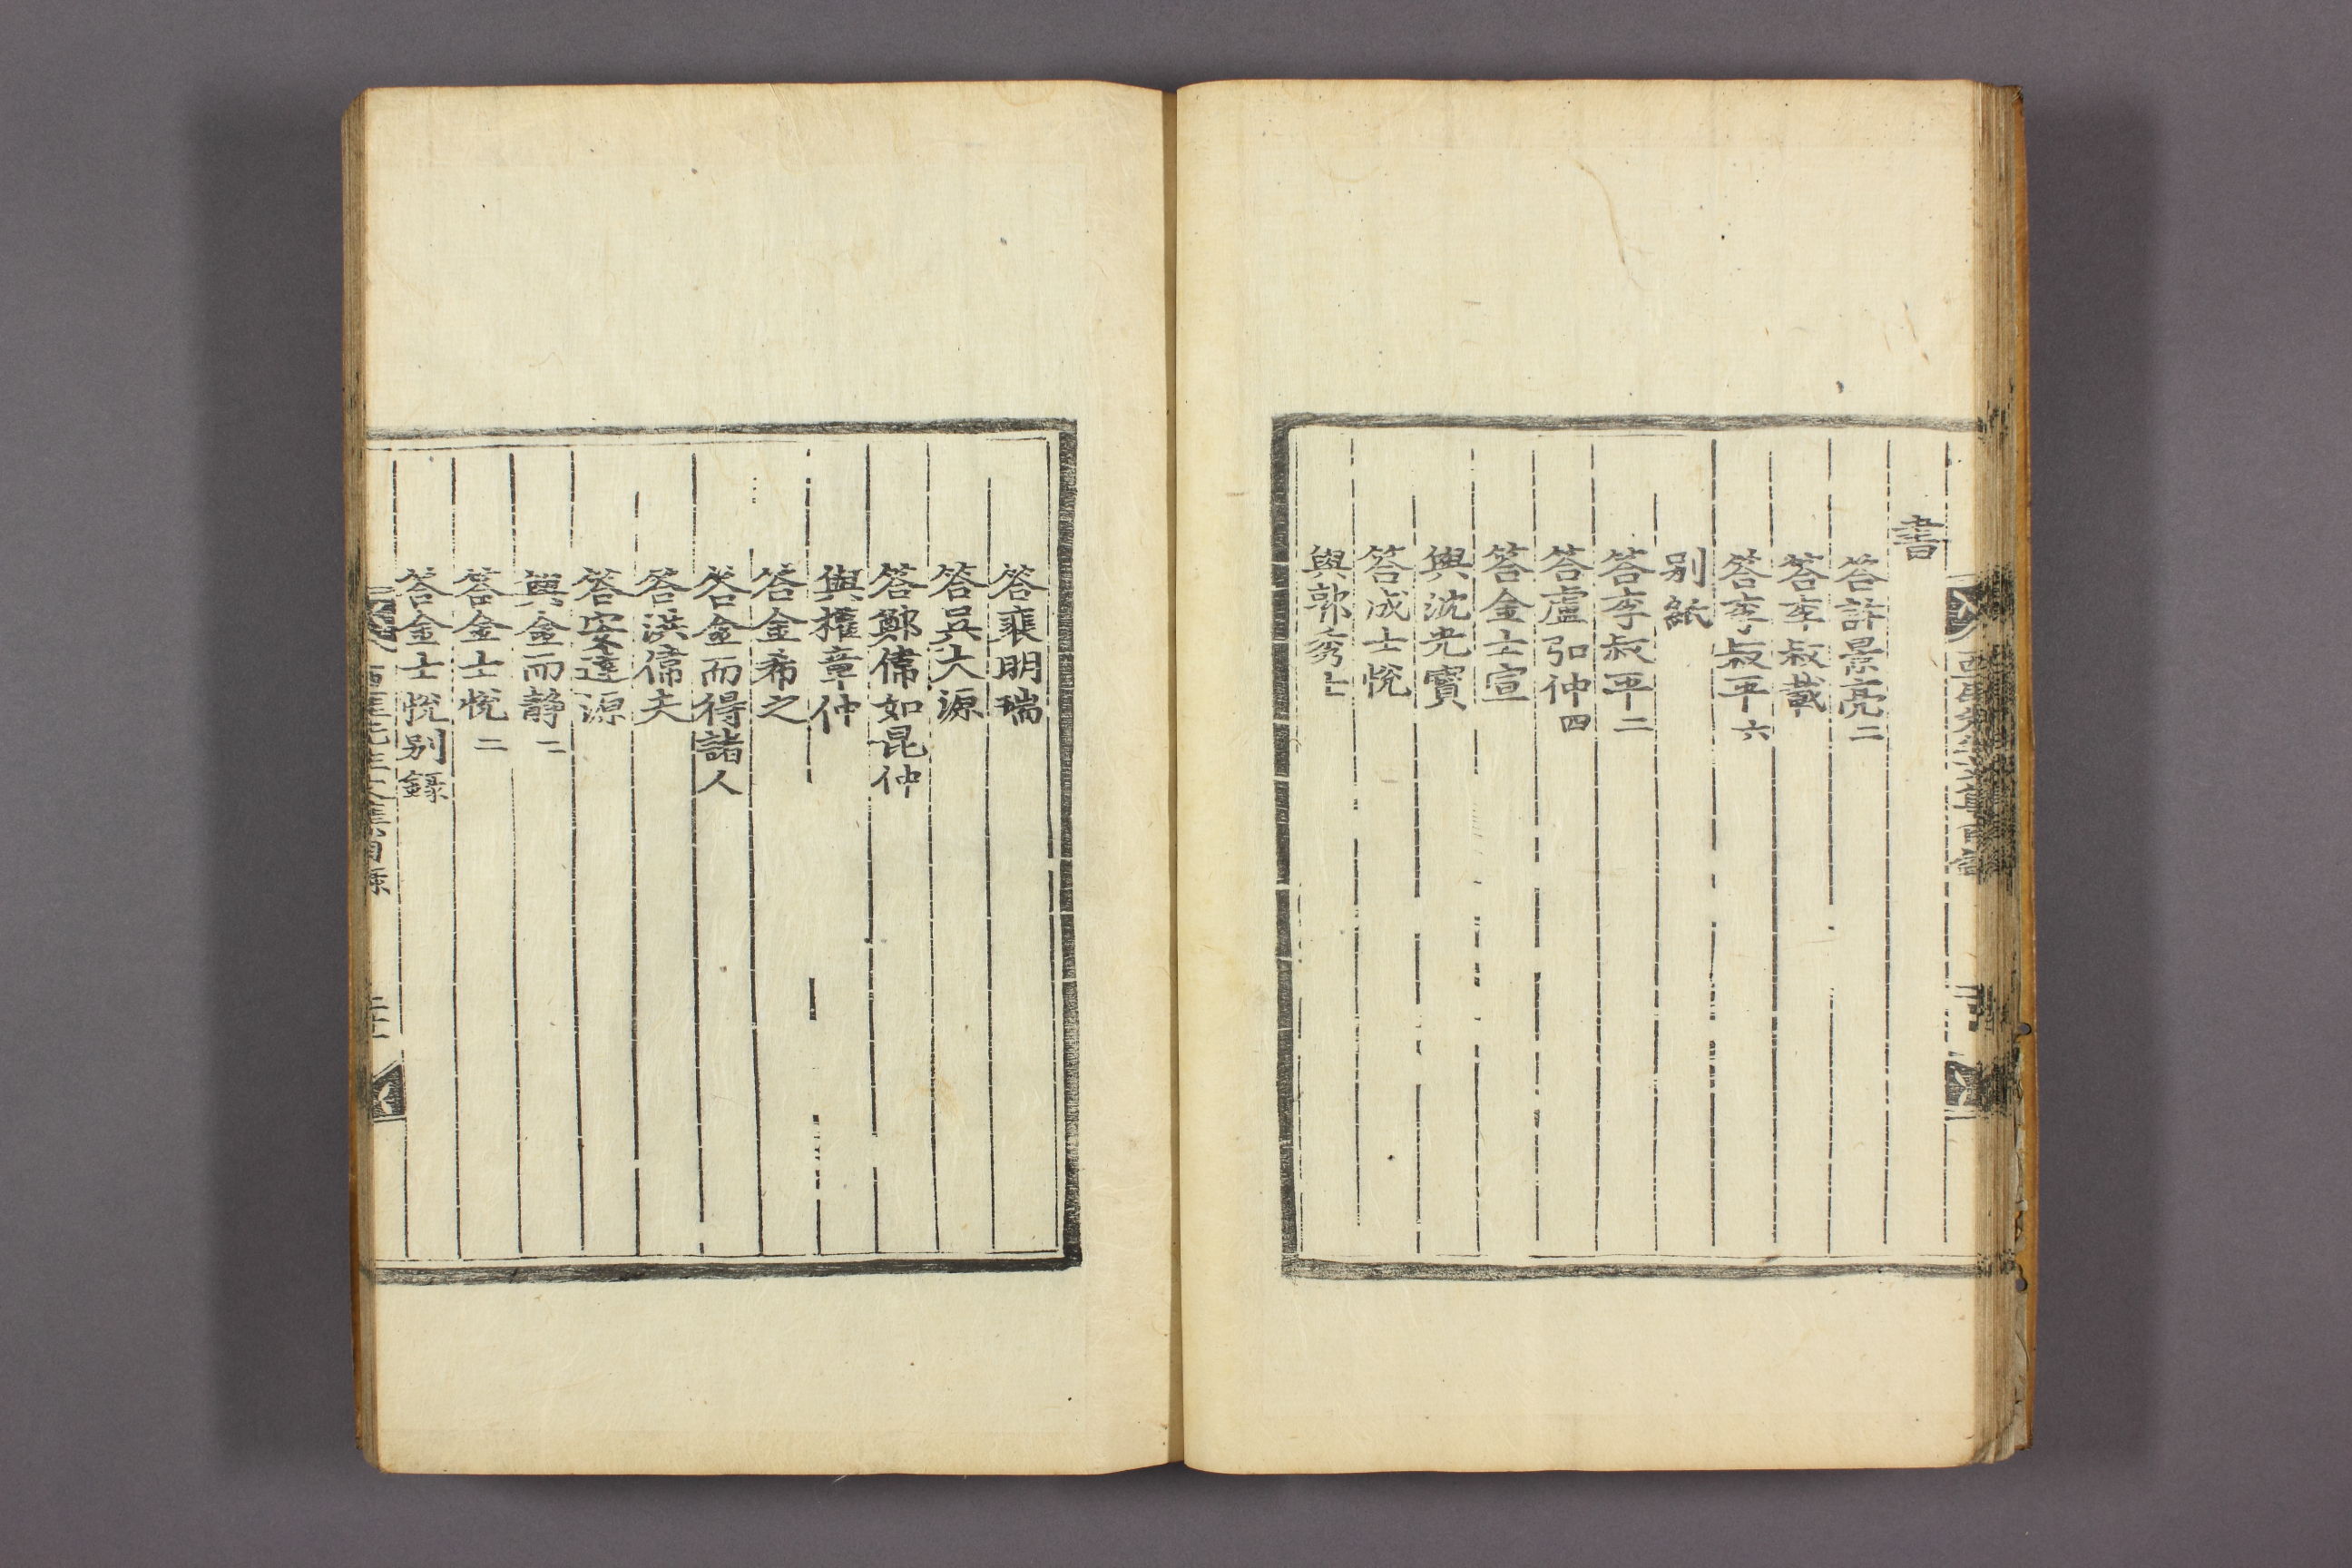 書
答許景亮二
答李叔蕆
答李叔平六
別紙
答李叔平二
答盧弘仲四
答金士宣
與沈光實
答成士悅
與郭秀士
答裴明瑞
答吳大源
答鄭儒如昆仲
與權章仲
答金希之
答金而得諸人
答洪儒夫
答安達源
與金而靜二
答金士悅二
答金士悅別錄